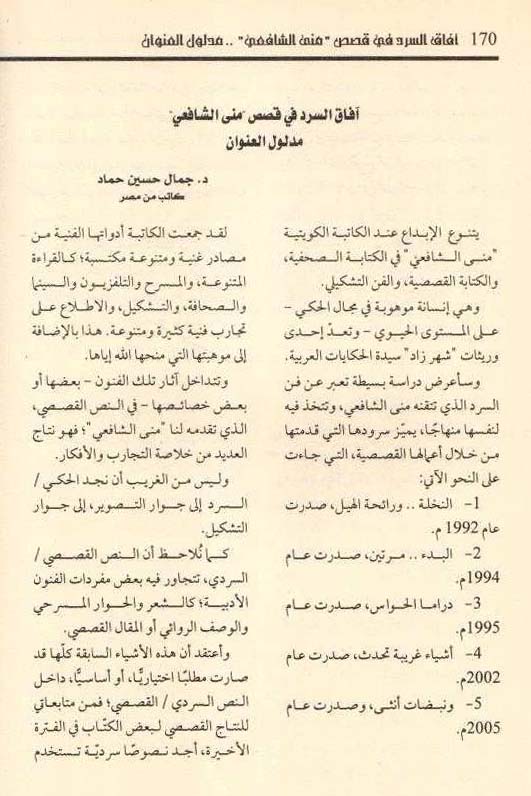 170 آفاق السرد في قصص "منى الشافعي" .. مدلول العنوان
آفاق السرد في قصص "منى الشافعي"
مدلول العنوان
د. جمال حسين حماد
كاتب من مصر
يتنوع الإبداع عند الكاتبة الكويتية
"منى الشافعي" في الكتابة الصحفية،
والكتابة القصصية، والفن التشكيلي.
وهي إنسانة موهوبة في مجال الحكي –
على المستوى الحيوي – وتعدّ إحدى
وريثات "شهر زاد" سيدة الحكايات العربية.
وسأعرض دراسة بسيطة تعبر عن فن
السرد الذي تتقنه منى الشافعي، وتتخذ فيه
لنفسها منهاجًا، يميّز سرودها التي قدمتها
من خلال أعمالها القصصية، التي جاءت
على النحو الآتي:
1- النخلة .. ورائحة الهيل، صدرت
عام 1992 م.
2- البدء .. مرتين، صدرت عام
1994م.
3- دراما الحواس، صدرت عام
1995م.
4- أشياء غريبة تحدث، صدرت عام
2002م.
5- ونبضات أنثى، وصدرت عام
2005م.
لقد جمعت الكاتبة أدواتها الفنية من
مصادر غنية ومتنوعة مكتسبة؛ كالقراءة
المتنوعة، والمسرح والتلفزيون والسينما
والصحافة، والتشكيل، والاطلاع على
تجارب فنية كثيرة ومتنوعة. هذا بالإضافة
إلى موهبتها التي منحها الله إياها.
وتتداخل آثار تلك الفنون – بعضها أو
بعض خصائصها – في النص القصصي،
الذي تقدمه لنا "منى الشافعي"؛ فهو نتاج
العديد من خلاصة التجارب والأفكار.
وليس من الغريب أن نجد الحكي /
السرد إلى جوار التصوير، إلى جوار
التشكيل.
كما نُلاحظ أن النص القصصي /
السردي، تتجاور فيه بعض مفردات الفنون
الأدبية؛ كالشعر والحوار المسرحي
والوصف الروائي أو المقال القصصي.
وأعتقد أن هذه الأشياء السابقة كلّها قد
صارت مطلبًا اختياريًّا، أو أساسيًّا، داخل
النص السردي / القصصي؛ فمن متابعاتي
للنتاج القصصي لبعض الكتّاب في الفترة
الأخيرة، أجد نصوصًا سرديّة تستخدم